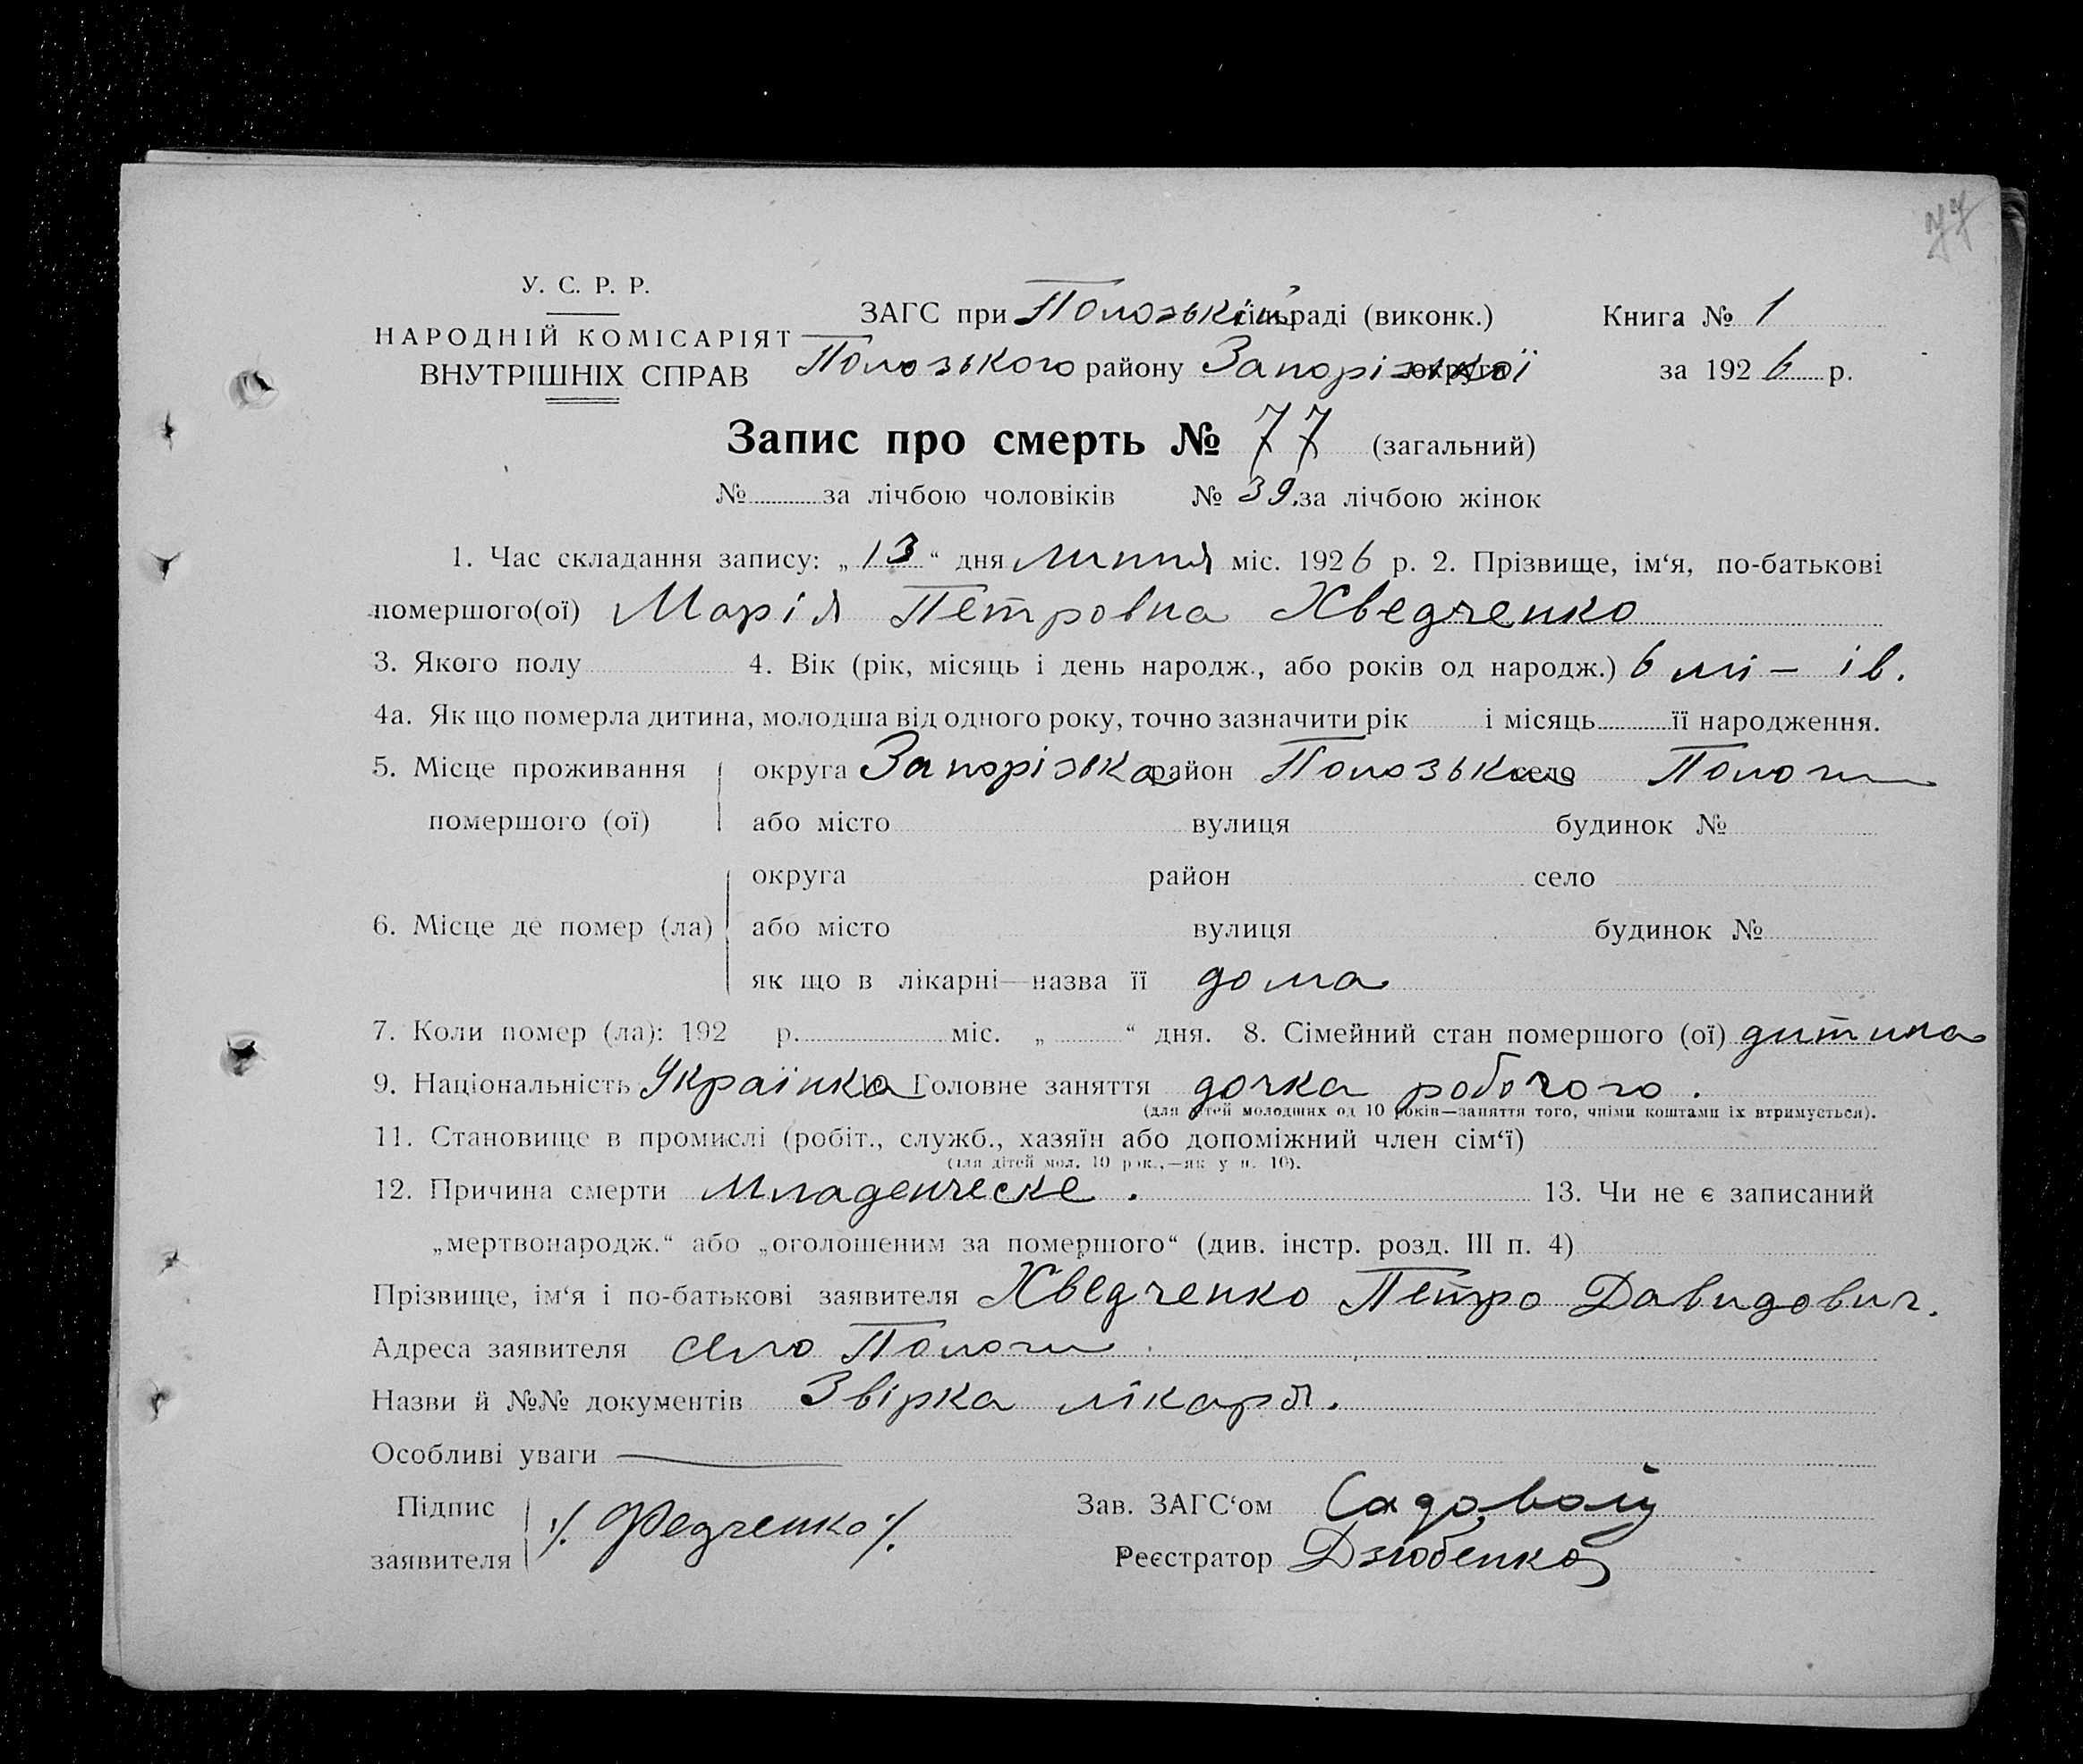 77
У. С. Р. Р.
НАРОДНІЙ КОМІСАРІЯТ
ВНУТРІШНІХ СПРАВ
ЗАГС при Положській сільраді (виконк.)
Книга № 1
Полозького району Запорізької округи
за 1926 р.
Запис про смерть № 77 (загальний)
№ за лічбою чоловіків № 39. за лічбою жінок
1. Час складання запису: „13“ дня липня міс. 1926 р. 2. Прізвище, ім‘я, по-батькові
помершого(ої) Марія Петровна Хведченко
3. Якого полу 4. Вік (рік, місяць і день народж., або років од народж.) 6 мі – ів.
4а. Як що померла дитина, молодша від одного року, точно зазначити рік і місяць її народження.
5. Місце проживання округа Запорізька район Полозький село Пологи
помершого (ої) або місто вулиця будинок №
округа район село
6. Місце де помер (ла) або місто вулиця будинок №
як що в лікарні—назва її дома
7. Коли помер (ла): 192 р. міс. „ “ дня. 8. Сімейний стан помершого (ої) дитина
9. Національність Українка 10. Головне заняття дочка робочого.
(для дітей молодших од 10 років—заняття того, чиїми коштами їх втримується).
11. Становище в промислі (робіт., служб., хазяїн або допоміжний член сім‘ї)
(для дітей мол. 10 рок.,—як у п. 10).
12. Причина смерти Младенческе. 13. Чи не є записаний
„мертвонародж.“ або „оголошеним за помершого“ (див. інстр. розд. III п. 4)
Прізвище, ім‘я і по-батькові заявителя Хведченко Петро Давидович.
Адреса заявителя село Пологи
Назви й №№ документів Звірка лікаря.
Особливі уваги —
Підпис
заявителя /. Федченко /.
Зав. ЗАГС‘ом Садовой
Реєстратор Дзюбенко